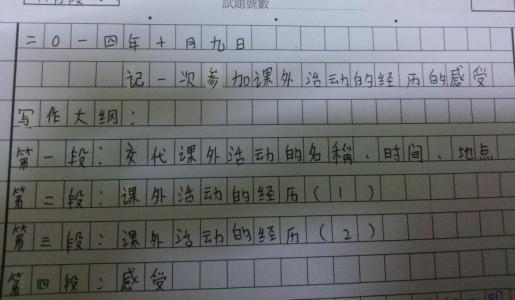 試題號數
二0一四年十月九日
记一次参加课外活动的经历的感受
写作大纲：
第一段：交代课外活动的名称、时间、地点
第二段：课外活动的经历（1）
第三段：课外活动的经历（2）
第四段：感受